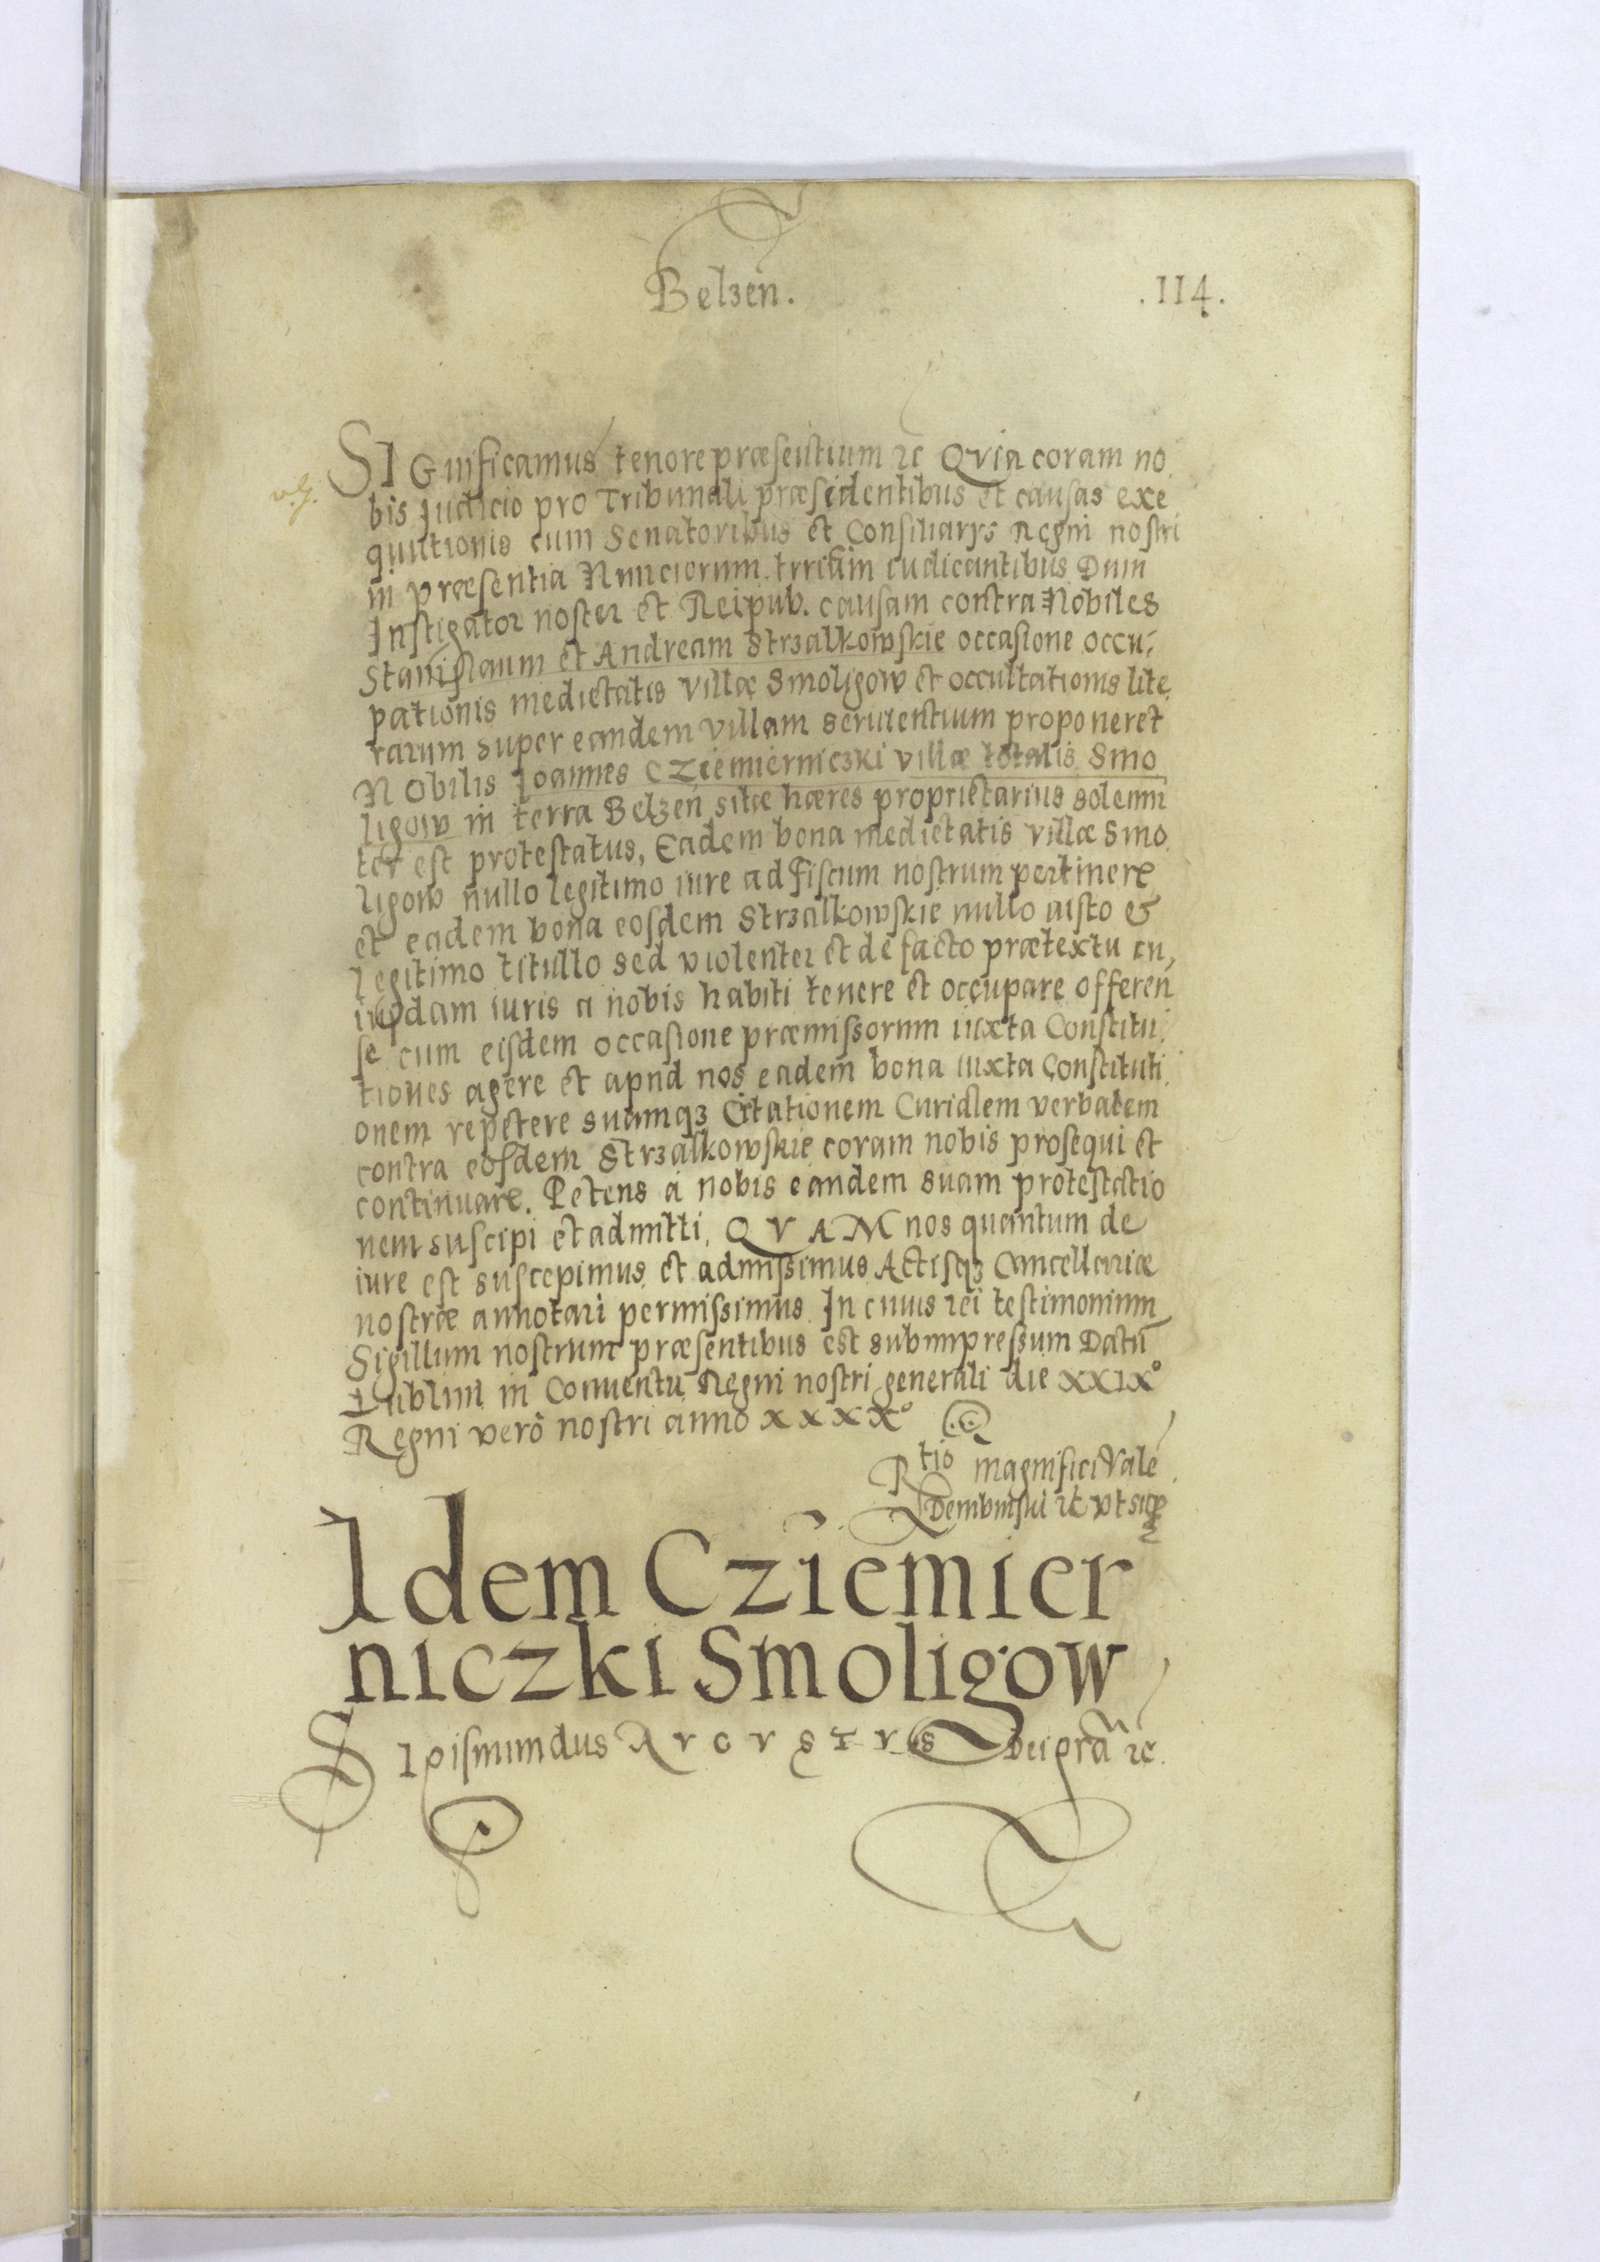 Belzen.
.114.
SIGnificamus tenore præsentium ꝛc QVia coram no
bis Iudicio pro Tribunali præsidentibus et causas exe
qutionis cum Senatoribus et Consiliarys Regni nostri
in præsentia Nunciorum. trrarum iudicantibus Dum
Instigator noster et Reipub. causam contra Nobiles
Stanislaum et Andream Strzalkowskie occasione occu,
pationis medietatis villæ Smoligow et occultationis lite
rarum super eandem villam seruientium proponeret
NObilis Ioannes Cziemierniczki villæ totalis Smo
ligow in terra Belzen sitæ hæres proprietarius solenni
ter est protestatus, Eadem bona medietatis villæ Smo
ligow nullo legitimo iure ad fiscum nostrum pertinere
et eadem bona eosdem Strzalkowskie nullo iusto &
legitimo titullo sed violenter et de facto prætextu cu,
iusdam iuris a nobis habiti tenere et occupare offeren
se cum eisdem occasione præmissorum iuxta Constitu,
tiones agere et apud nos eadem bona iuxta Constituti
onem repetere suamqȝ Citationem Curialem verbalem
contra eosdem Strzalkowskie coram nobis prosequi et
continuare. Petens a nobis eandem suam protestatio
nem suscipi et admitti, QVAM nos quantum de
iure est suscepimus et admissimus Actisqȝ Cancellariæ
nostræ annotari permissimus. In cuius rei testimonium
Sigillum nostrum præsentibus est subimpressum Datū
Lublini in Conuentu Regni nostri generali die XXIXº
Regni verò nostri anno XXXXº
Rtio magnifici Vale
Dembinski ꝛc vt sup
Idem Cziemier
niczki Smoligow
SIgismundus AVGVSTVS Dei gra ꝛc.